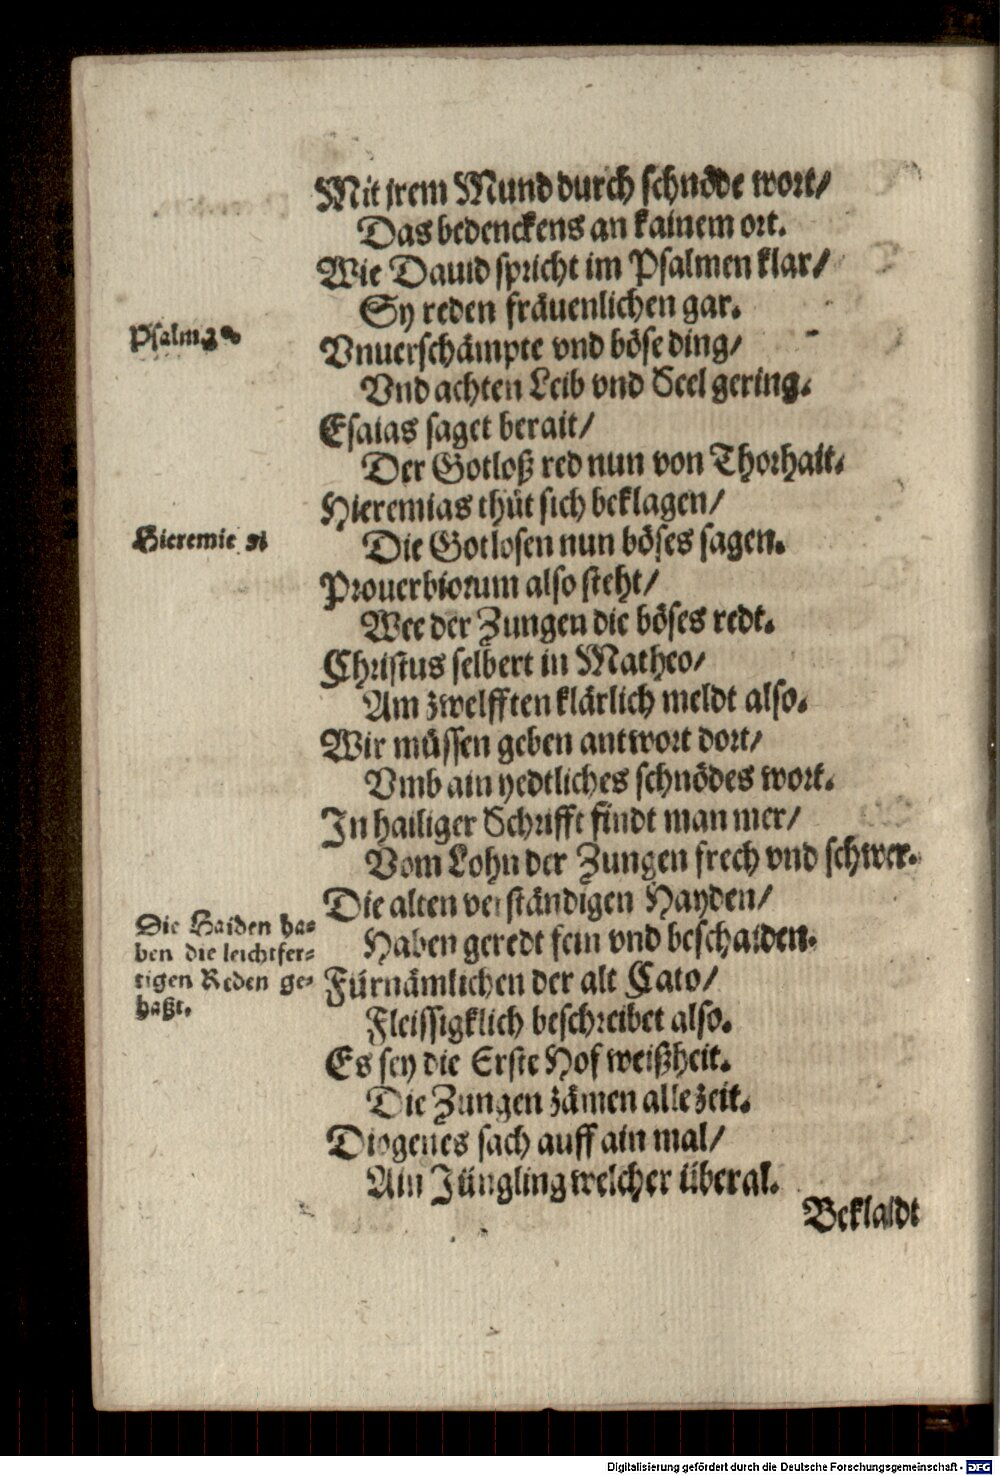 Mit jrem Mund durch schnöde wort/
Das bedenckens an kainem ort.
Wie Dauid spricht im Psalmen klar/
Sy reden fräuenlichen gar.
Psalm.
Vnuerschämpte vnd böse ding/
Vnd achten Leib vnd Seel gering.
Esaias saget berait/
Der Gotloß red nun von Thorhait.
Hieremias thüt sich beklagen/
Hieremie
Die Gotlosen nun böses sagen.
Prouerbiorum also steht/
Wee der Zungen die böses redt.
Christus selbert in Matheo/
Am zwelfften klärlich meldt also.
Wir müssen geben antwort dort/
Vmb ain yedtliches schnödes wort.
In hailiger Schrifft findt man mer/
Vom Lohn der Zungen frech vnd schwer.
Die alten verständigen Hayden/
Haben geredt fein vnd beschaiden.
Die Haiden ha=
ben die leichtfer=
tigen Reden ge=
haßt.
Fürnämlichen der alt Cato/
Fleissigklich beschreibet also.
Es sey die Erste Hof weißheit.
Die Zungen zämen alle zeit.
Diogenes sach auff ain mal/
Ain Jüngling welcher überal.
Beklaidt
Digitalisierung gefördert durch die Deutsche Forschungsgemeinschaft - DFG